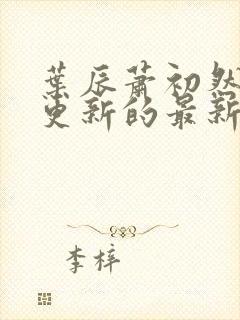 葉辰蕭初然
更新的最新
李梓